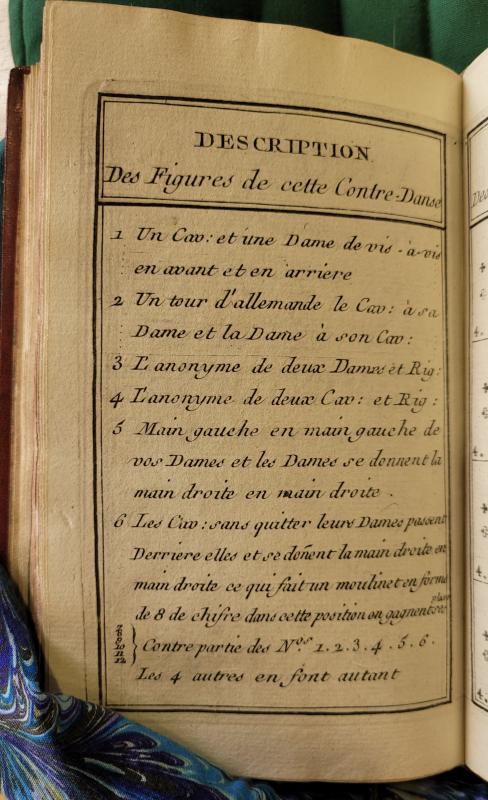 DESCRIPTION
Des Figures de cette Contre-Danse
1 Un Cav: et une Dame de vis-à-vis
en avant et en arriere
2 Un tour d'allemande le Cav: à sa
Dame et la Dame à son Cav:
3 L'anonyme de deux Dames et Rig:
4 L'anonyme de deux Cav: et Rig:
5 Main gauche en main gauche de
vos Dames et les Dames se donnent la
main droite en main droite.
6 Les Cav: sans quitter leurs Dames passent
Derriere elles et se doñent la main droite en
main droite ce qui fait un moulinet en forme
de 8 de chifre dans cette position on gagnent
place
7
8
9
10
11
12
Contre partie des Nos. 1.2.3.4.5.6.
Les 4 autres en font autant